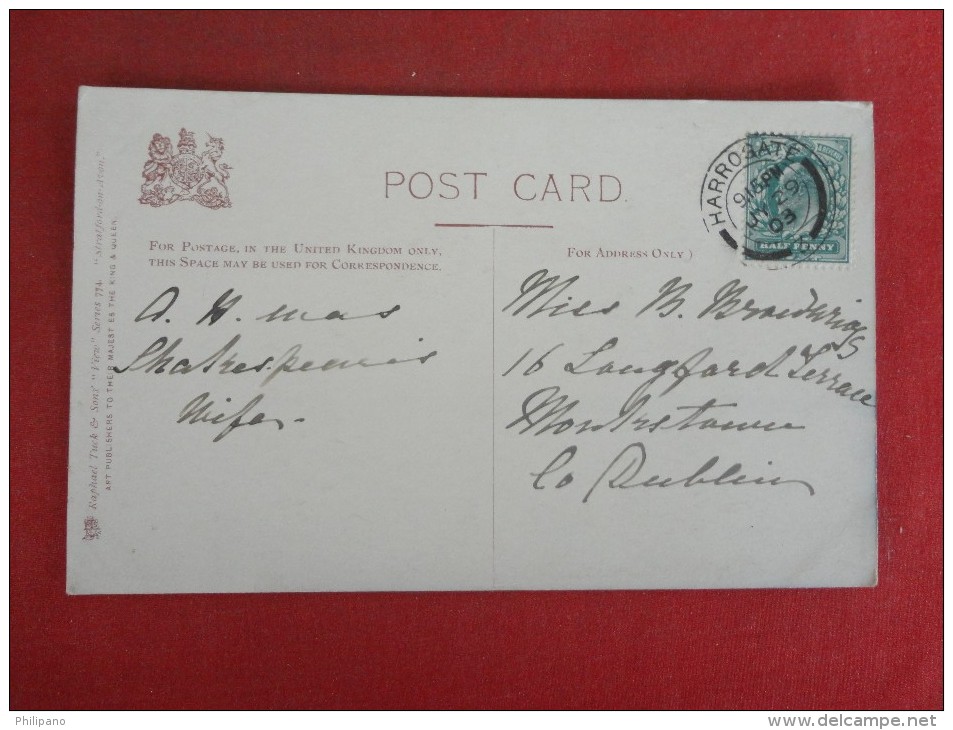 POST CARD.
FOR POSTAGE, IN THE UNITED KINGDOM ONLY,
THIS SPACE MAY BE USED FOR CORRESPONDENCE.
(FOR ADDRESS ONLY)
HARROGATE
9 15 PM
JY 29
03
HALF PENNY
A. H. was
Shakespeare's
Wife.
Miss B.
16 Longford Terrace
Monkstown
Co Dublin
Raphael Tuck & Sons' "View" Series 774. "Stratford-on-Avon."
ART PUBLISHERS TO THEIR MAJESTIES THE KING & QUEEN.
Philipano
www.delcampe.net